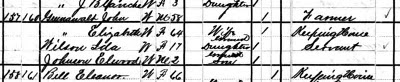 " J Blanche W F 3 Daughter 1
157 160 John W M 58 1 Farmer
" Elizabeth W F 64 Wife 1 Keeping House
Wilson Ida W F 17 Daughter 1 Servant
Johnson Elwood W M 2 Son 1
158 161 Bell Eleanor W F 66 1 Keeping House